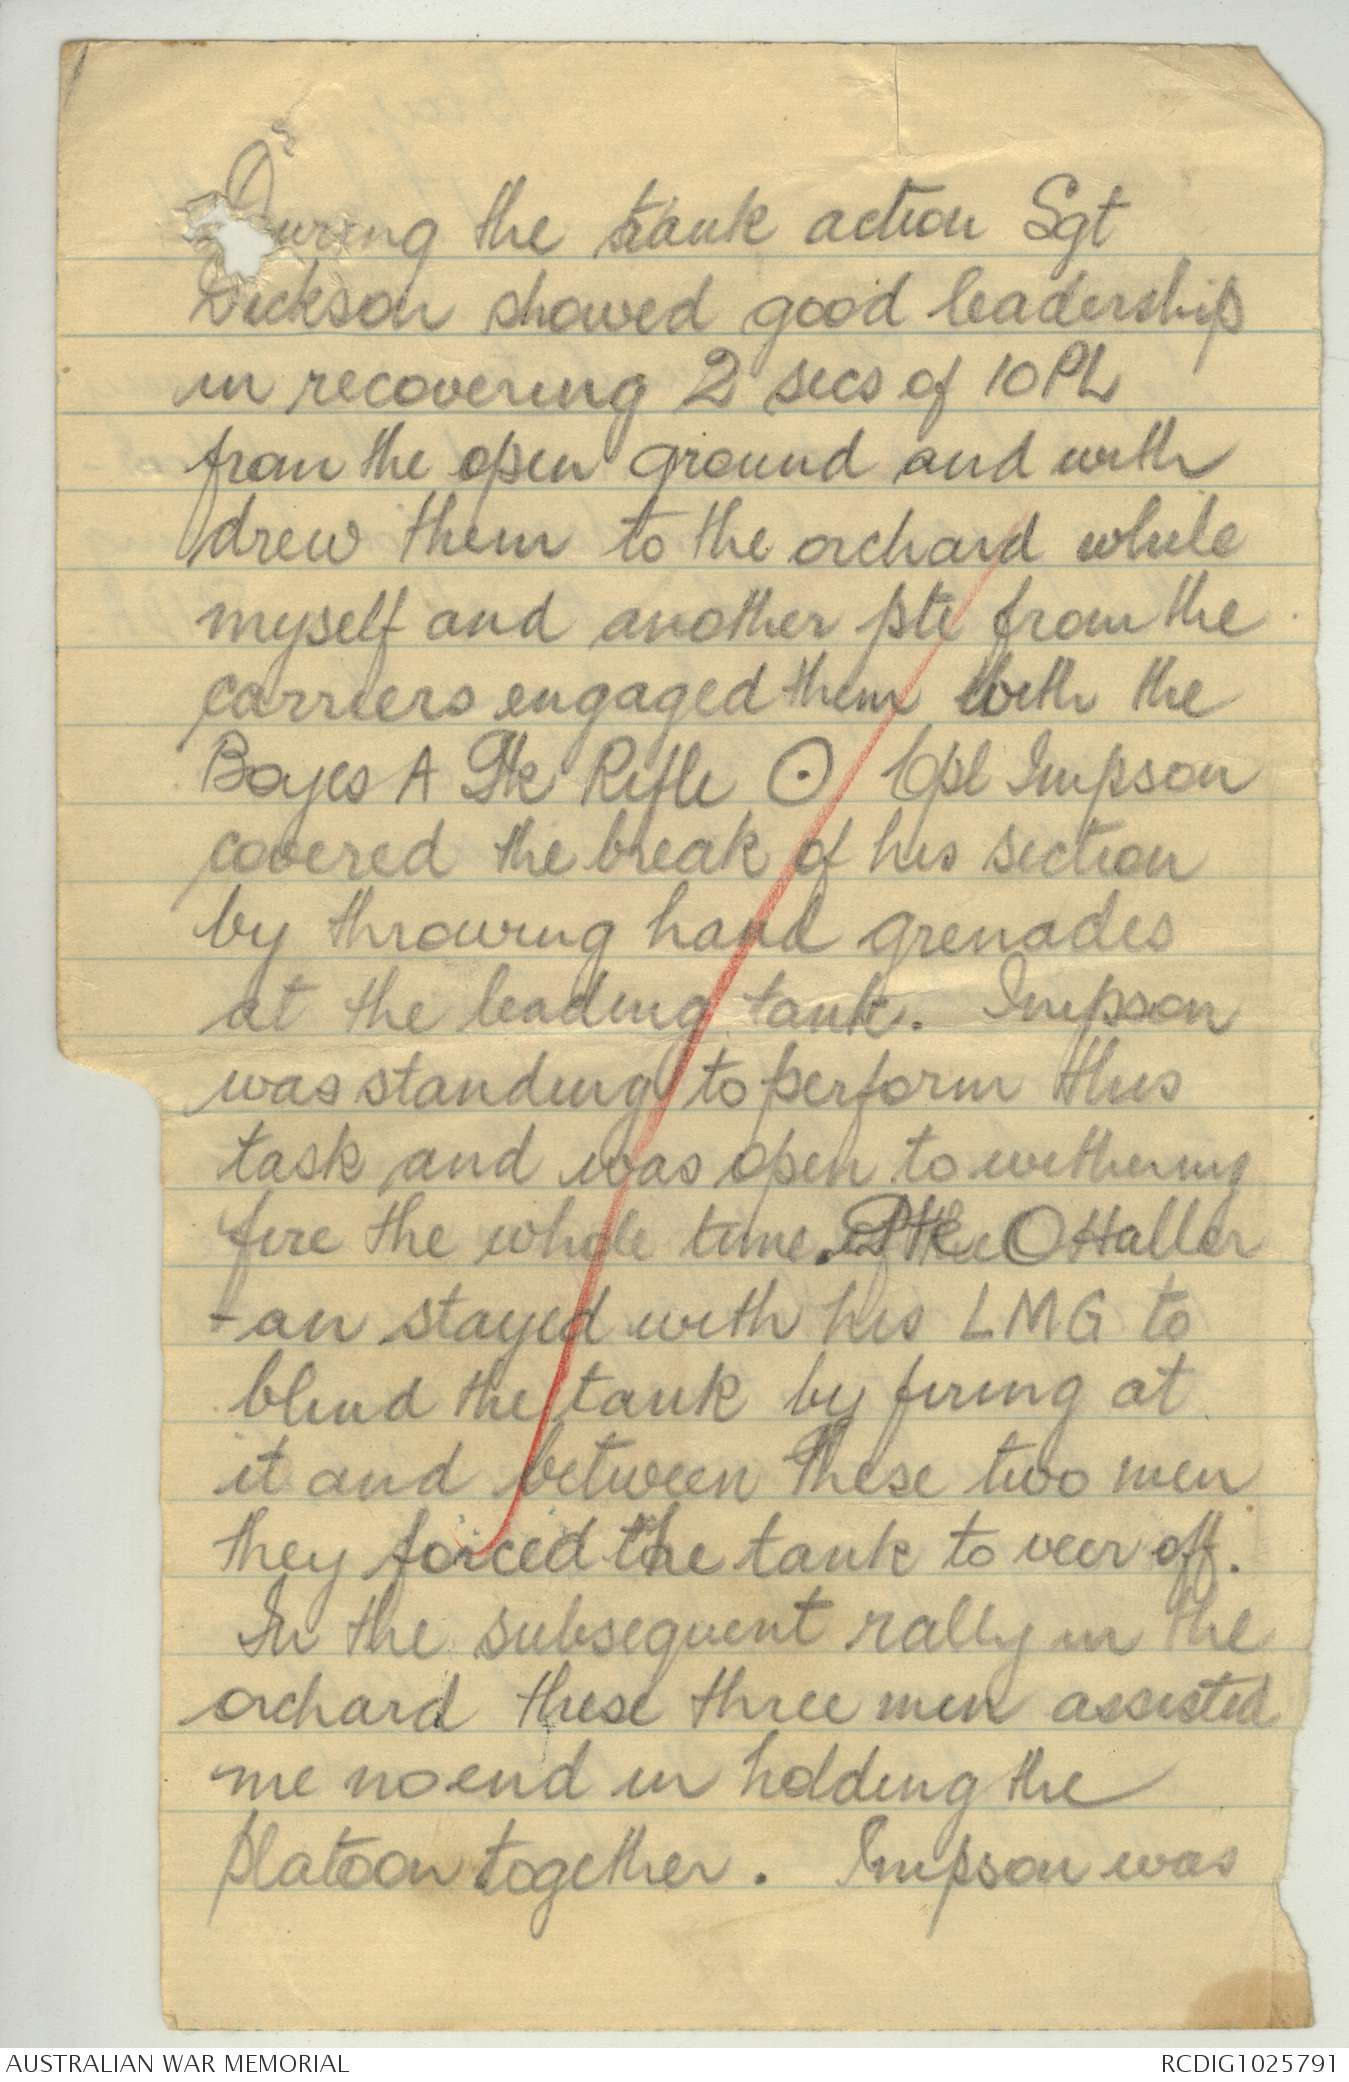 During the tank action Sgt
Dickson showed good leadership
in recovering 2 secs of 10 PL
from the open ground and with
drew them to the orchard while
myself and another pte from the
carriers engaged them with the
Boyes A Tk Rifle ⊙ Cpl Impson
covered the break of his section
by throwing hand grenades
at the leading tank. Impson
was standing to perform this
task and was open to withering
fire the whole time. Pte O Haller
-an stayed with his LMG to
blind the tank by firing at
it and between these two men
they forced the tank to veer off.
In the subsequent rally in the
orchard these three men assisted
me no end in holding the
platoon together. Impson was
AUSTRALIAN WAR MEMORIAL
RCDIG1025791